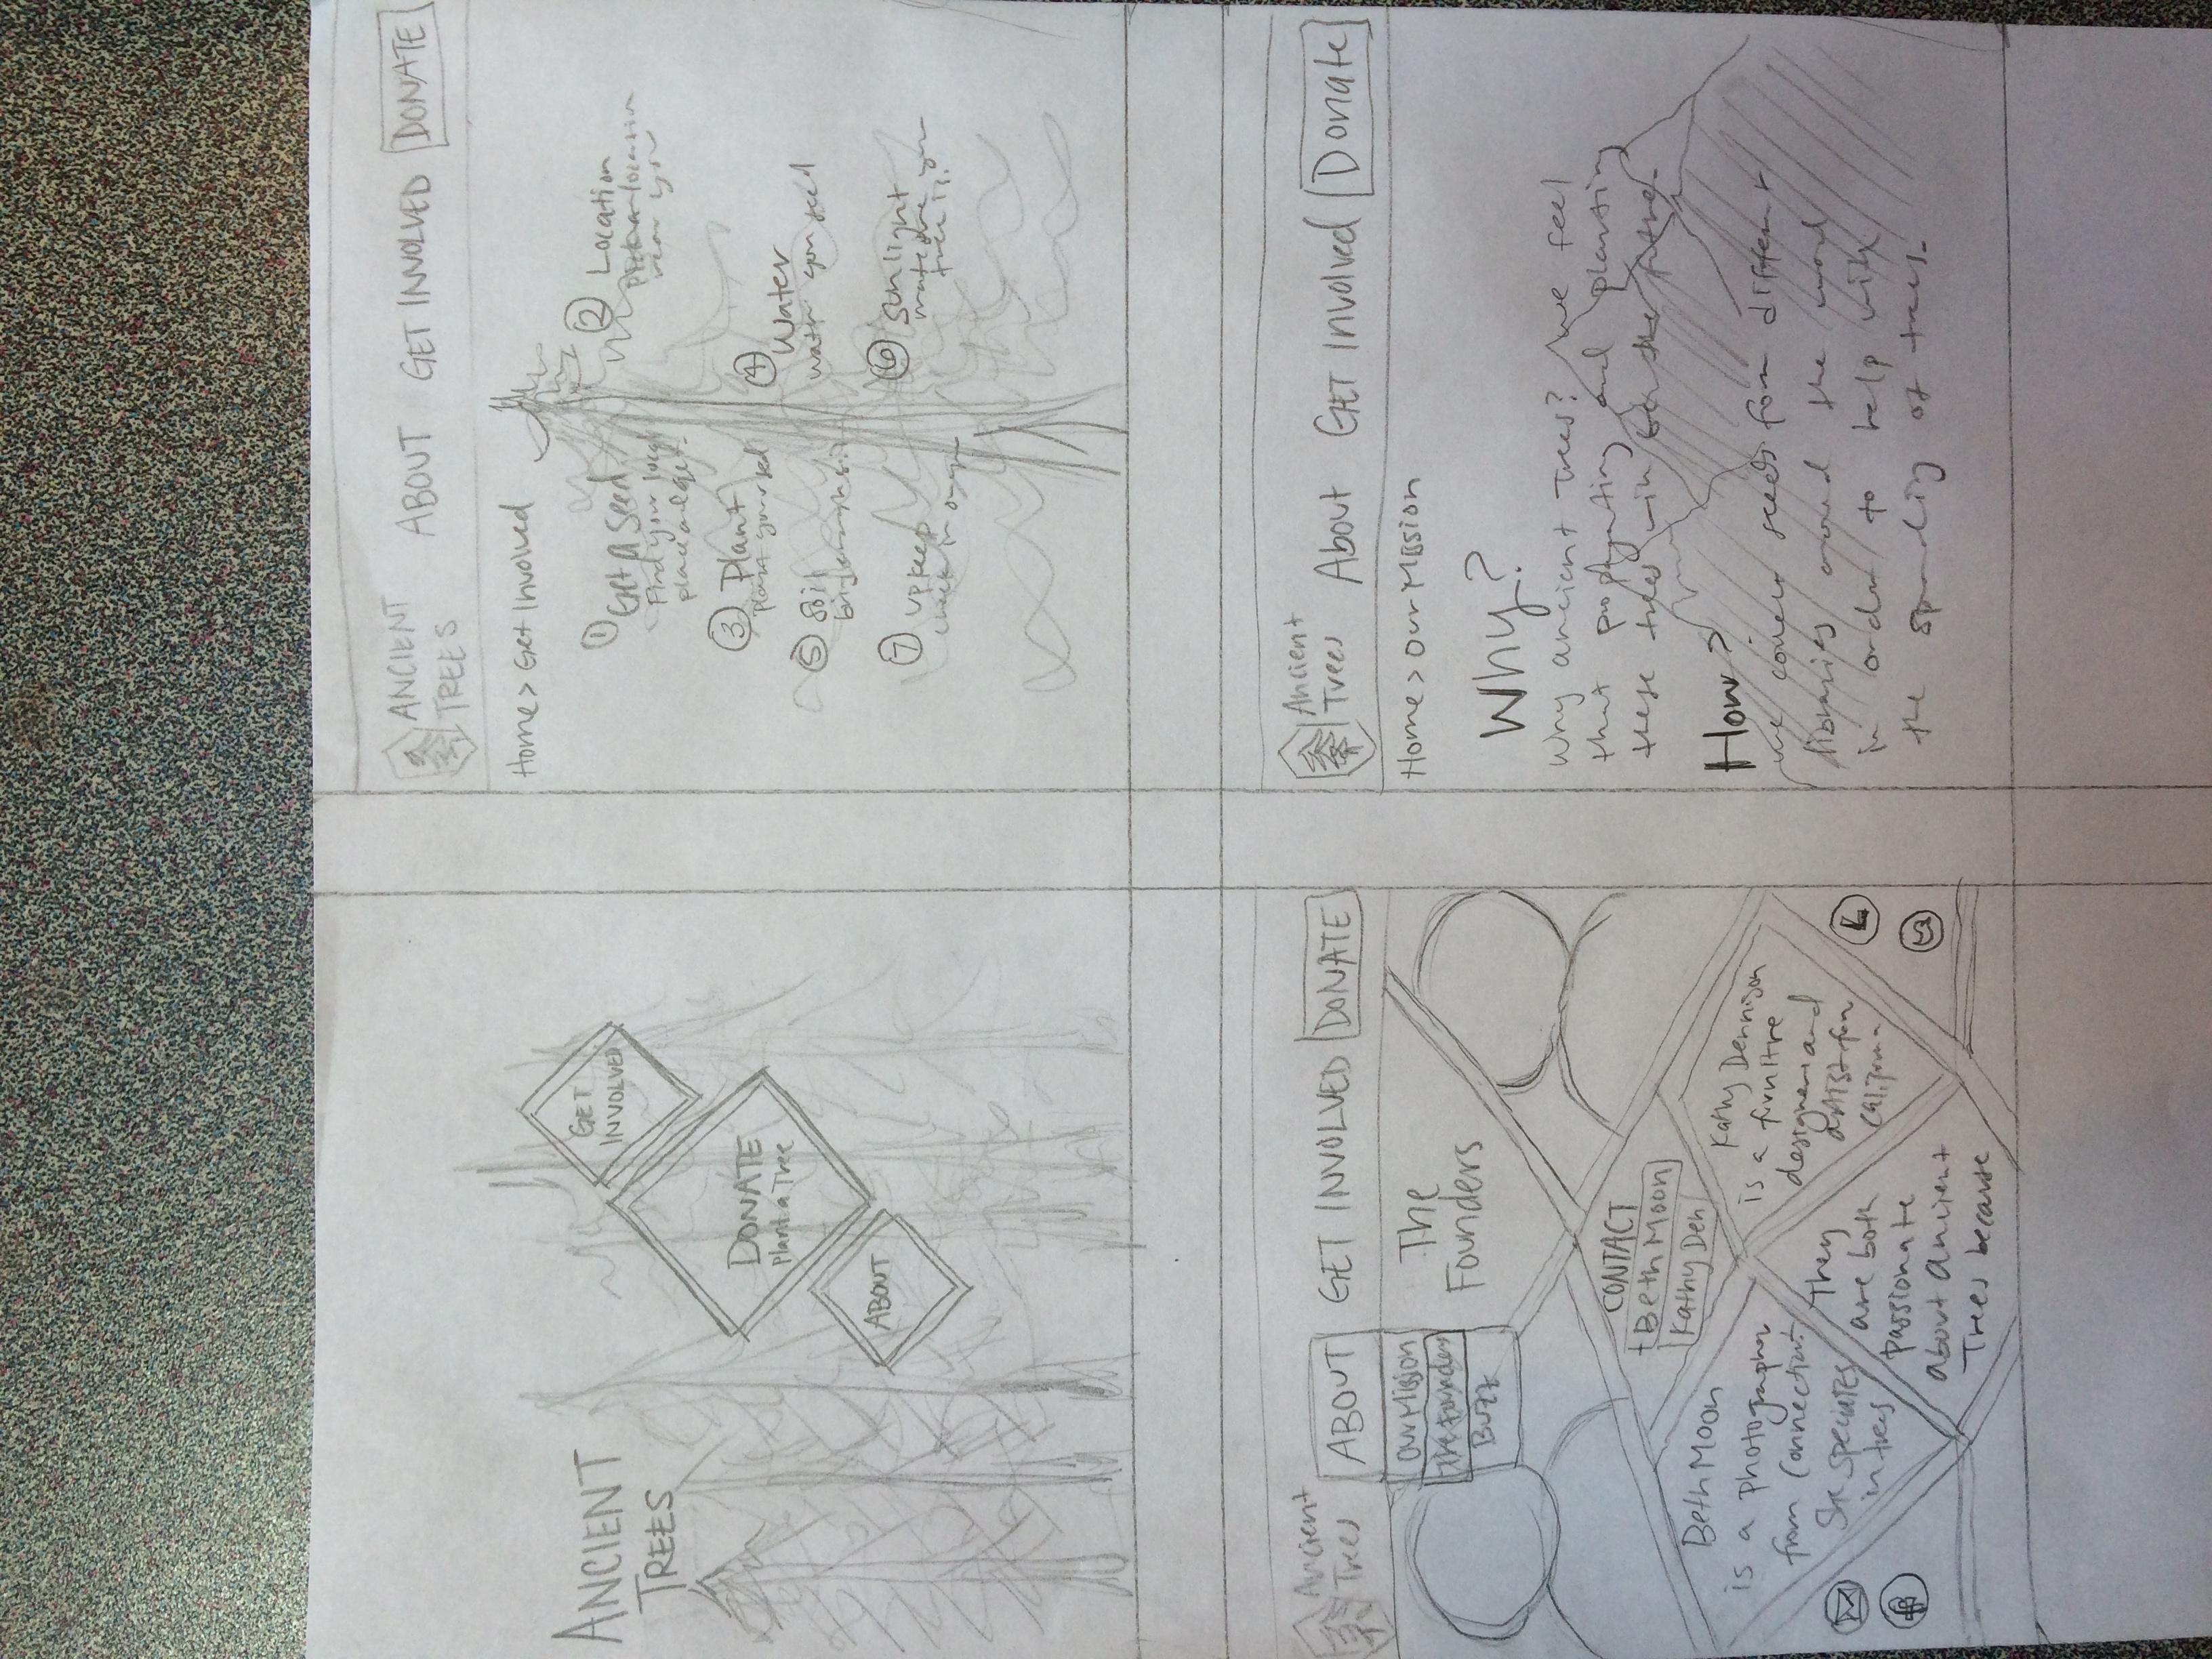 ANCIENT
TREES
GET
INVOLVED
DONATE
Plant a Tree
ABOUT
ANCIENT
TREES
ABOUT
GET INVOLVED
DONATE
Home > Get Involved
1 Get a seed
Find your local
place and get.
2 Location
pick a location
near you
3 Plant
plant your seed
4 Water
water your seed
5 Soil
6 Sunlight
make sure your
tree is.
7 upkeep
check in on
Ancient
Trees
ABOUT
GET INVOLVED
DONATE
Our Mission
The Founders
Buzz
The
Founders
CONTACT
+ Beth Moon
Kathy Den
Beth Moon
is a photographer
from
She specializes
in trees
They
are both
passionate
about Ancient
Trees because
Kathy Dennison
is a furnitre
designer and
artist from
California
Ancient
Trees
About
Get Involved
Donate
Home > Our Mission
Why?
Why ancient Trees? We feel
that propagating and planting
these trees will the future.
How?
we seeds from different
libraries around the
in order to help with
the of trees.